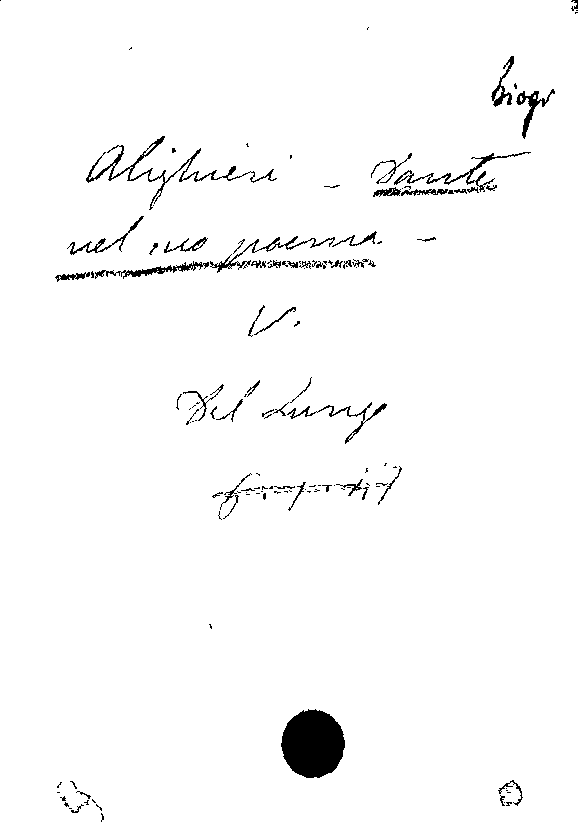 biogr
Alighieri - Dante
nel suo poema -
V.
Del Lungo